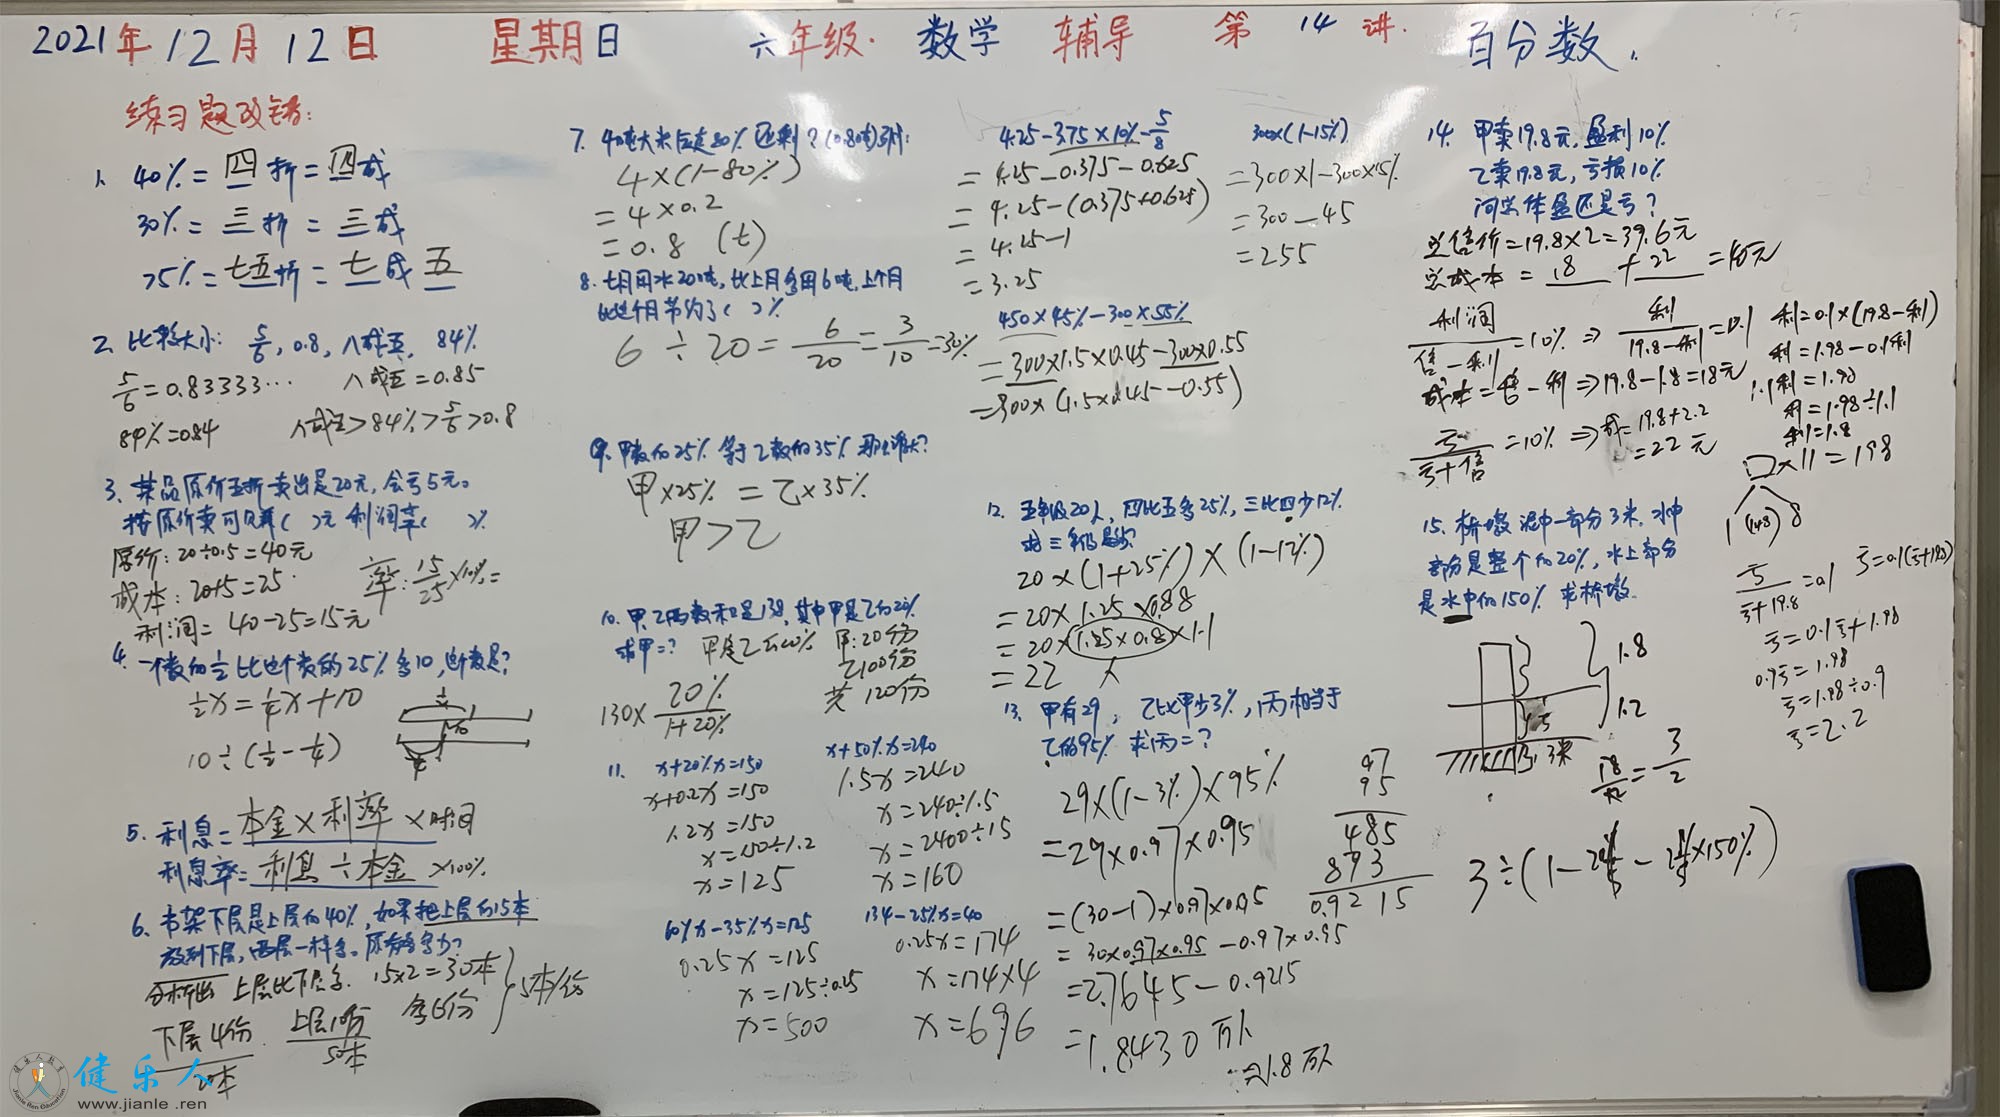 2021年12月12日 星期日 六年级. 数学 辅导 第 14 讲. 百分数.
练习题改错:
1. 40%=四折=四成
30%=三折=三成
75%=七五折=七成五
2. 比较大小: 5/6, 0.8, 八成五, 84%
5/6=0.83333… 八成五=0.85
84%=0.84 八成五>84%>5/6>0.8
3. 某品原价五折卖出是20元,会亏5元。
按原价卖可贝兼( )元 利润率( )%
原价: 20÷0.5=40元
成本: 20+5=25
率: 15/25×100%=
利润=40-25=15元
4. 一个数的1/2比这个数的25%多10,这个数是?
1/2x=1/4x+10
10÷(1/2-1/4)
5. 利息=本金×利率×时间
利息率=利息÷本金×100%
6. 书架下层是上层的40%,如果把上层的15本
放到下层,两层一样多。原有各多少?
上层比下层多 15×2=30本
下层4份 上层10份 多6份 5本/份
20本 50本
健乐人
www.jianle.ren
7. 4吨大米运走80% 还剩?(0.80吨)
4×(1-80%)
=4×0.2
=0.8 (t)
8. 七月用水20吨,比上月多用6吨,上个月
比这个月节约了( )%
6÷20=6/20=3/10=30%
9. 甲数的25% 等于乙数的35% 那么谁大?
甲×25%=乙×35%
甲>乙
10. 甲、乙两数和是132,其中甲是乙的20%
求甲=? 甲是乙的20% 甲:20份
乙100份
共120份
130×20%/1+20%
11. x+20%x=150
x+0.2x=150
1.2x=150
x=150÷1.2
x=125
x+50%x=240
1.5x=240
x=240÷1.5
x=2400÷15
x=160
60%x-35%x=125
0.25x=125
x=125÷0.25
x=500
134-25%x=40
0.25x=174
x=174×4
x=696
4.25-375×10%-5/8
=4.25-0.375-0.625
=4.25-(0.375+0.625)
=4.25-1
=3.25
300×(1-15%)
=300×1-300×15%
=300-45
=255
450×45%-300×55%
=300×1.5×0.45-300×0.55
=300×(1.5×0.45-0.55)
12. 五年级20人,四比五多25%,三比四少12%
求三年级是多少?
20×(1+25%)×(1-12%)
=20×1.25×0.88
=20×(1.25×0.8)×1.1
=22 人
13. 甲有29, 乙比甲少3%,丙相当于
乙的95% 求丙=?
29×(1-3%)×95%
=29×0.97×0.95
=(30-1)×0.97×0.95
=30×0.97×0.95-0.97×0.95
=27.645-0.9215
=1.8430 万人
≈1.8 万人
97
95
485
873
0.9215
14. 甲卖19.8元,盈利10%
乙卖19.8元,亏损10%
问总体盈还是亏?
总售价=19.8×2=39.6元
总成本=18+22=40元
利润/售-利=10%⇒利/19.8-利=0.1
成本=售-利⇒19.8-1.8=18元
亏/亏+售=10%⇒成=19.8+2.2
=22元
利=0.1×(19.8-利)
利=1.98-0.1利
1.1利=1.98
利=1.98÷1.1
利=1.8
□×11=198
1 (1+8) 8
亏/亏+19.8=0.1 亏=0.1(亏+19.8)
亏=0.1亏+1.98
0.9亏=1.98
亏=1.98÷0.9
亏=2.2
15. 桥墩 泥中一部分3米,水中
部分是整个的20%,水上部分
是水中的150% 求桥墩.
1.8
1.2
3米
18/12=3/2